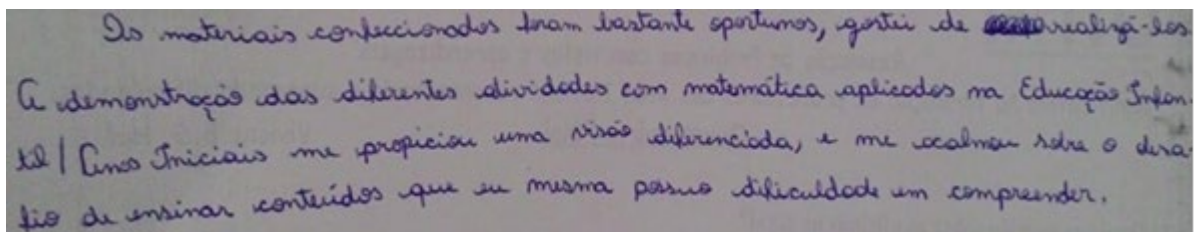 Os materiais confeccionados foram bastante oportunos, gostei de realizá-los
A demonstração das diferentes atividades com matemática aplicados na Educação Infan-
til / Anos Iniciais me propiciou uma visão diferenciada, e me acalmou sobre o desa-
fio de ensinar conteúdos que eu mesma possuo dificuldade em compreender.